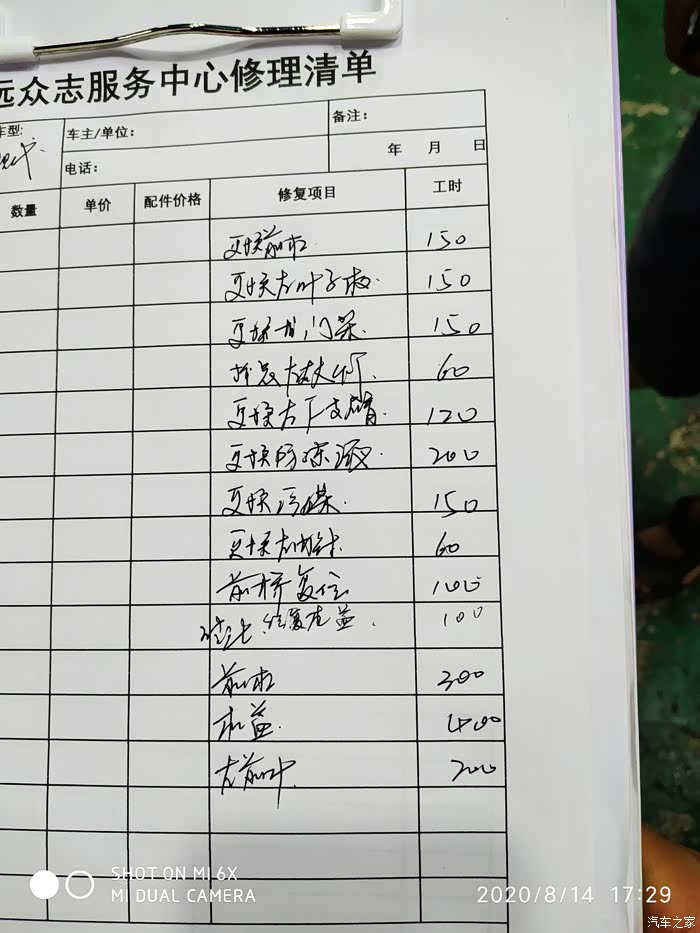 远众志服务中心修理清单
车型: 车主/单位: 备注:
电话: 年 月 日
数量 单价 配件价格 修复项目 工时
更换前杠 150
更换左叶子板 150
更换龙门架 150
60
更换左下支臂 120
更换防冻液 200
更换冷媒 150
更换左 60
前桥复位 100
修复左 100
前杠 300
机盖 400
左前叶 200
SHOT ON MI 6X
MI DUAL CAMERA
2020/8/14 17:29
汽车之家